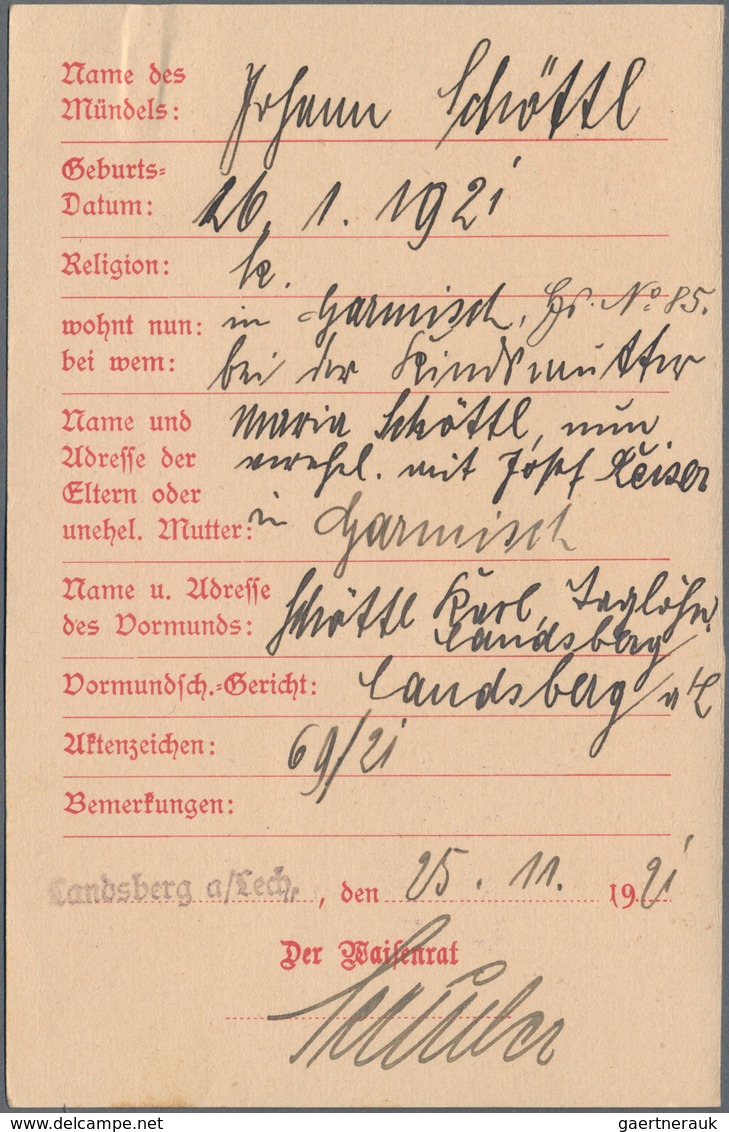 Name des
Mündels: Johann Schöttl
Geburts-
Datum: 26. 1. 1921
Religion: k.
wohnt nun: in Garmisch, Hs. No. 85.
bei wem: bei der Kindsmutter
Name und Maria Schöttl, nun
Adresse der verehel. mit Josef Keiser
Eltern oder
unehel. Mutter: in Garmisch
Name u. Adresse
des Vormunds: Schöttl Karl, Taglöhn.
Landsberg
Vormundsch.-Gericht: Landsberg a/L
Aktenzeichen: 69/21
Bemerkungen:
Landsberg a/Lech, , den 25. 11. 1921
Der Waisenrat
gaertnerauk